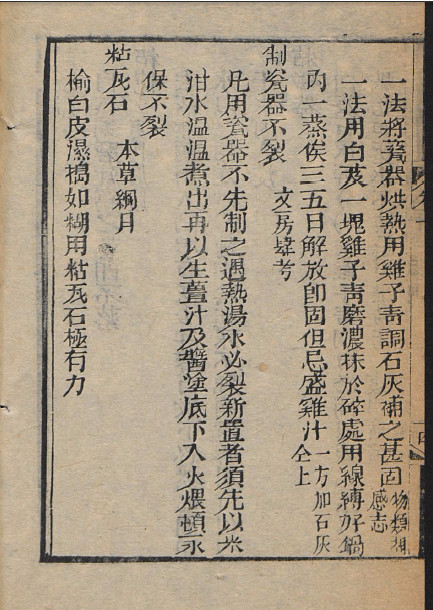 一法將瓷器烘熱用雞子青調石灰補之甚固物類相感志
一法用白芨一塊雞子青磨濃抹於碎處用線縛好鍋
內一蒸俟三五日解放卽固但忌盛雞汁一方加石灰 仝上
制瓷器不裂 文房肆考
凡用瓷器不先制之遇熱湯水必裂新置者須先以米
泔水溫溫煮出再以生薑汁及醬塗底下入火煨頓永
保不裂
粘瓦石 本草綱目
榆白皮濕搗如糊用粘瓦石極有力